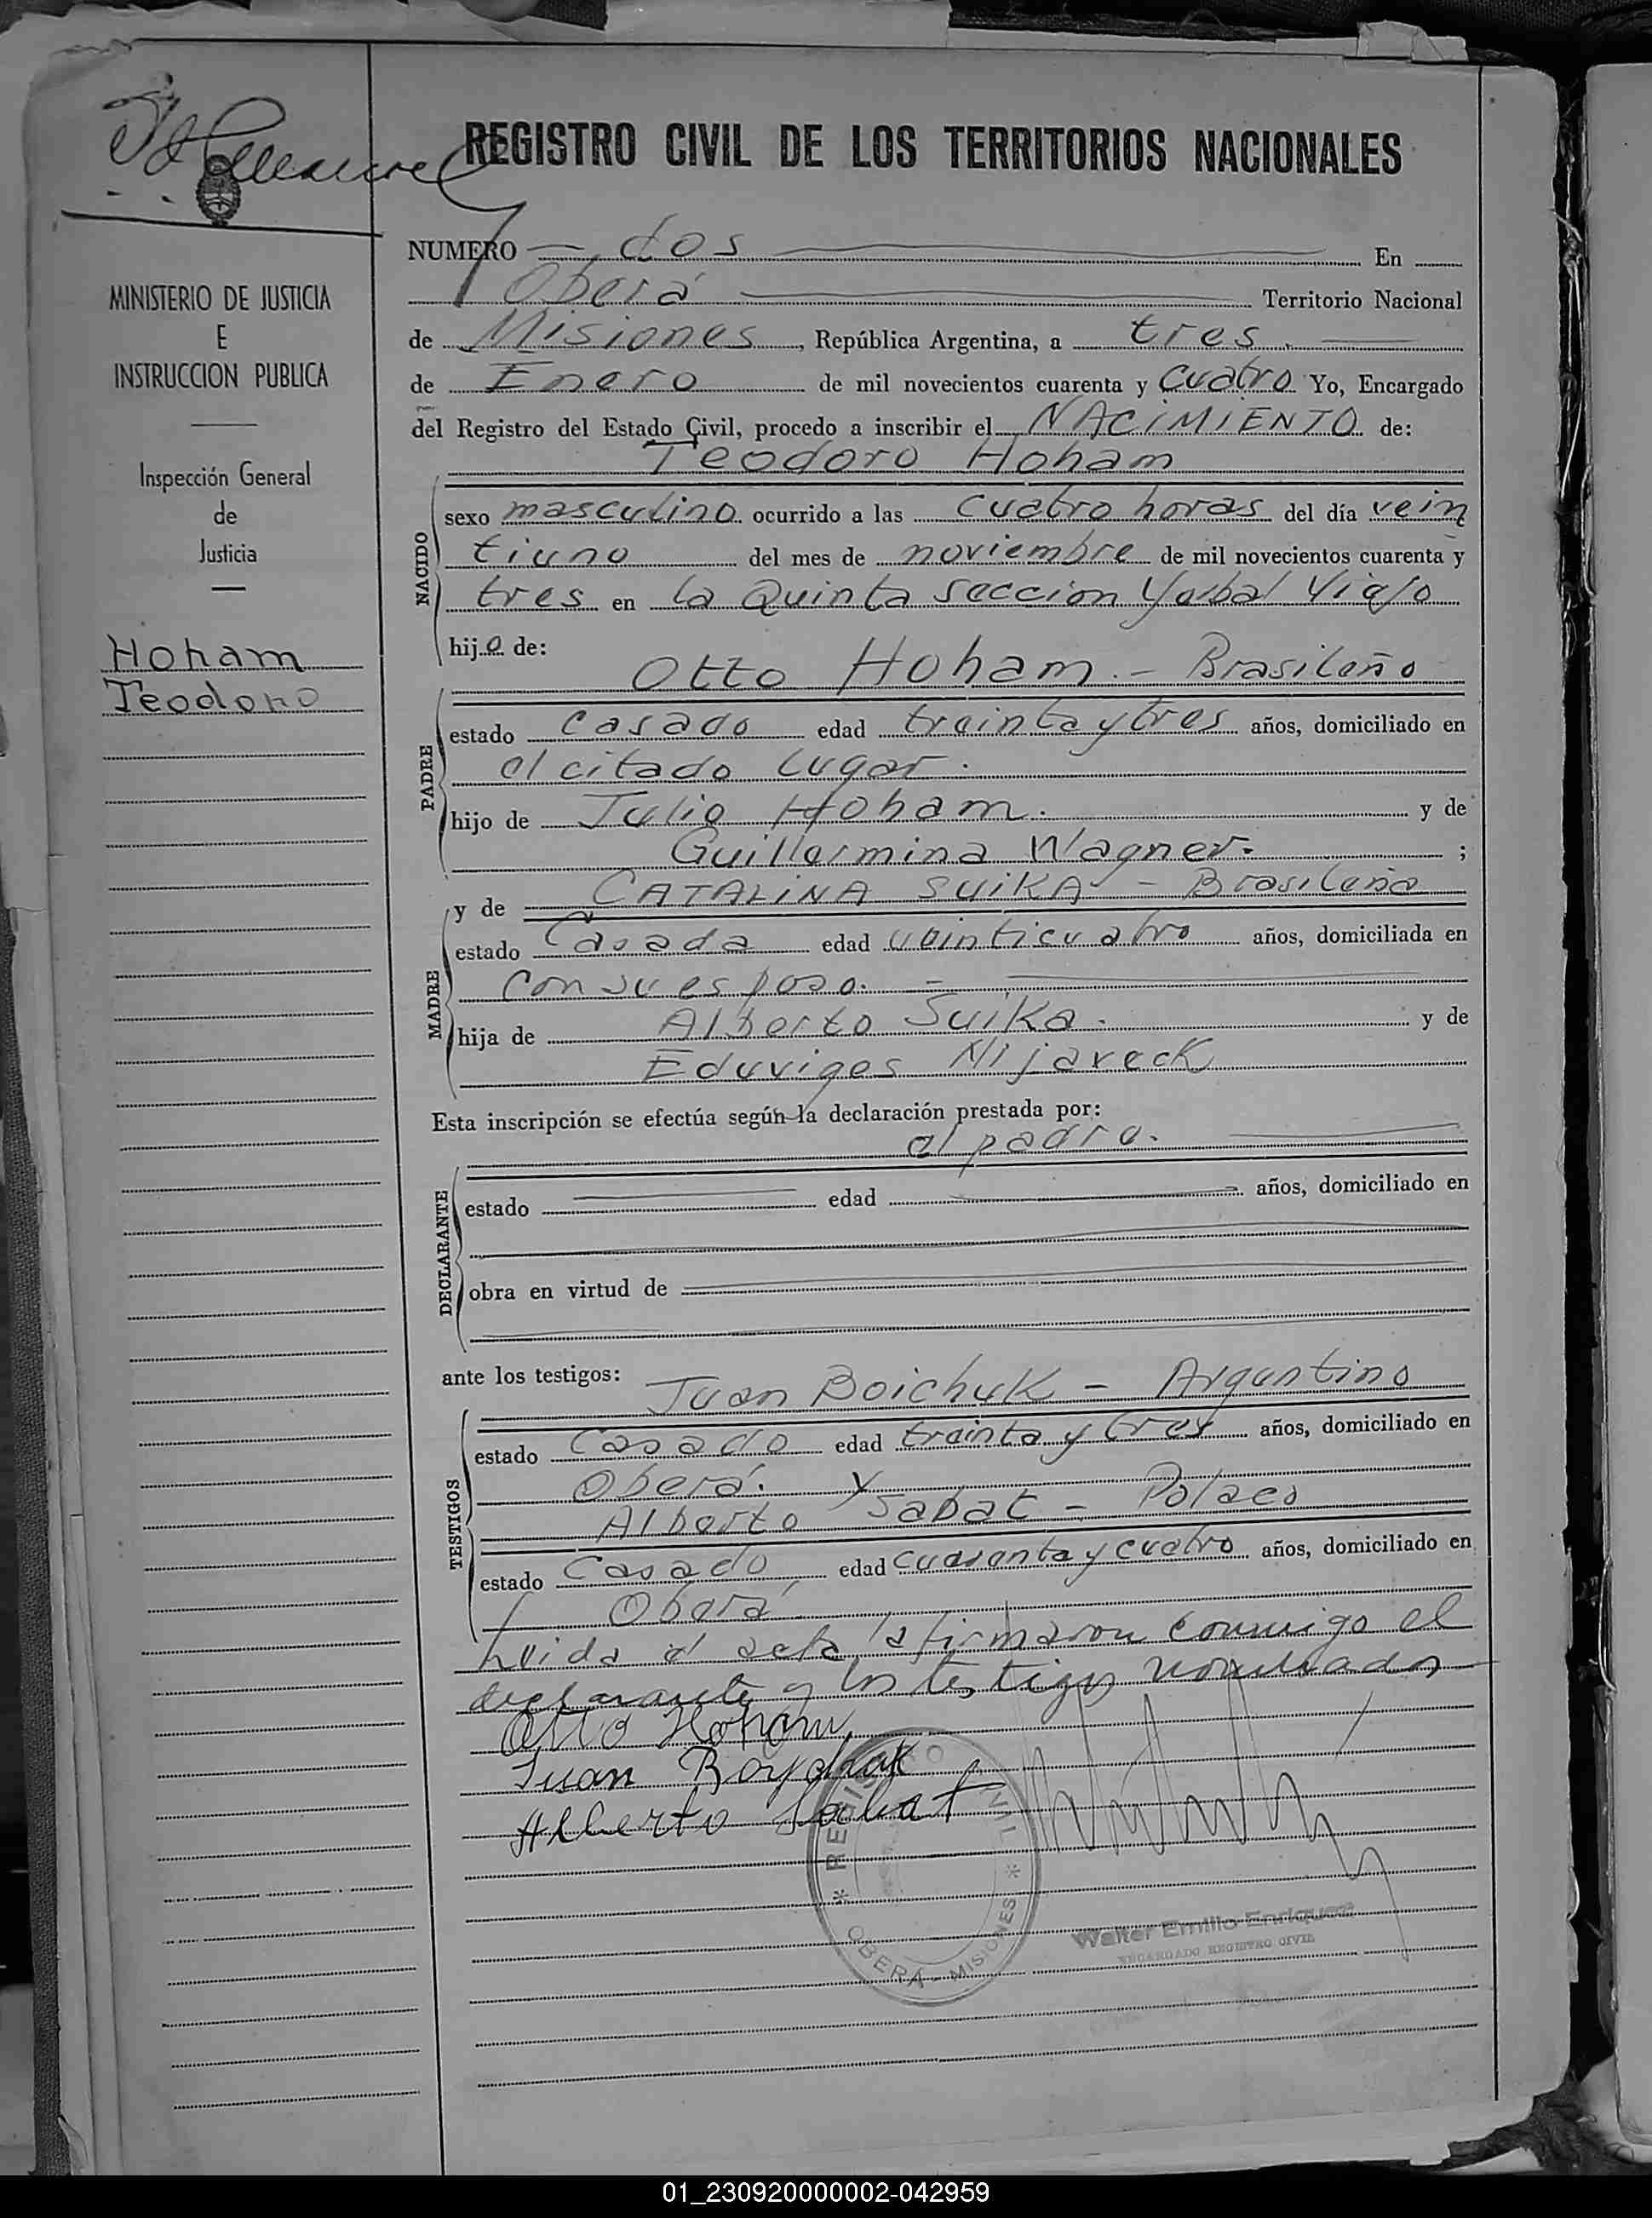 REGISTRO CIVIL DE LOS TERRITORIOS NACIONALES
MINISTERIO DE JUSTICIA
E
INSTRUCCION PUBLICA
Inspección General
de
Justicia
Hoham
Teodoro
NUMERO dos En
Oberá Territorio Nacional
de Misiones, República Argentina, a tres
de Enero de mil novecientos cuarenta y cuatro Yo, Encargado
del Registro del Estado Civil, procedo a inscribir el NACIMIENTO de:
Teodoro Hoham
NACIDO
sexo masculino ocurrido a las cuatro horas del día vein
tiuno del mes de noviembre de mil novecientos cuarenta y
tres en la Quinta Seccion Yerbal Viejo
hijo de:
Otto Hoham.- Brasileño
PADRE
estado casado edad treinta y tres años, domiciliado en
el citado lugar.
hijo de Julio Hoham. y de
Guillermina Wagner. ;
y de CATALINA SUIKA - Brasileña
MADRE
estado Casada edad veinticuatro años, domiciliada en
con su esposo. -
hija de Alberto Suika. y de
Eduviges Nijareck
Esta inscripción se efectúa según la declaración prestada por:
el padre.
DECLARANTE
estado edad años, domiciliado en
obra en virtud de
ante los testigos:
Juan Boichuk - Argentino
TESTIGOS
estado Casado edad treinta y tres años, domiciliado en
Oberá. y
Alberto Sabat - Polaco
estado Casado edad cuarenta y cuatro años, domiciliado en
Oberá
Leida el acta la firmaron conmigo el
declarante y los testigos nombrados
Otto Hoham
Juan Boychuk
Alberto Sabat
* REGISTRO CIVIL *
OBERÁ - MISIONES
Walter Emilio Enriquez
ENCARGADO REGISTRO CIVIL
01_230920000002-042959